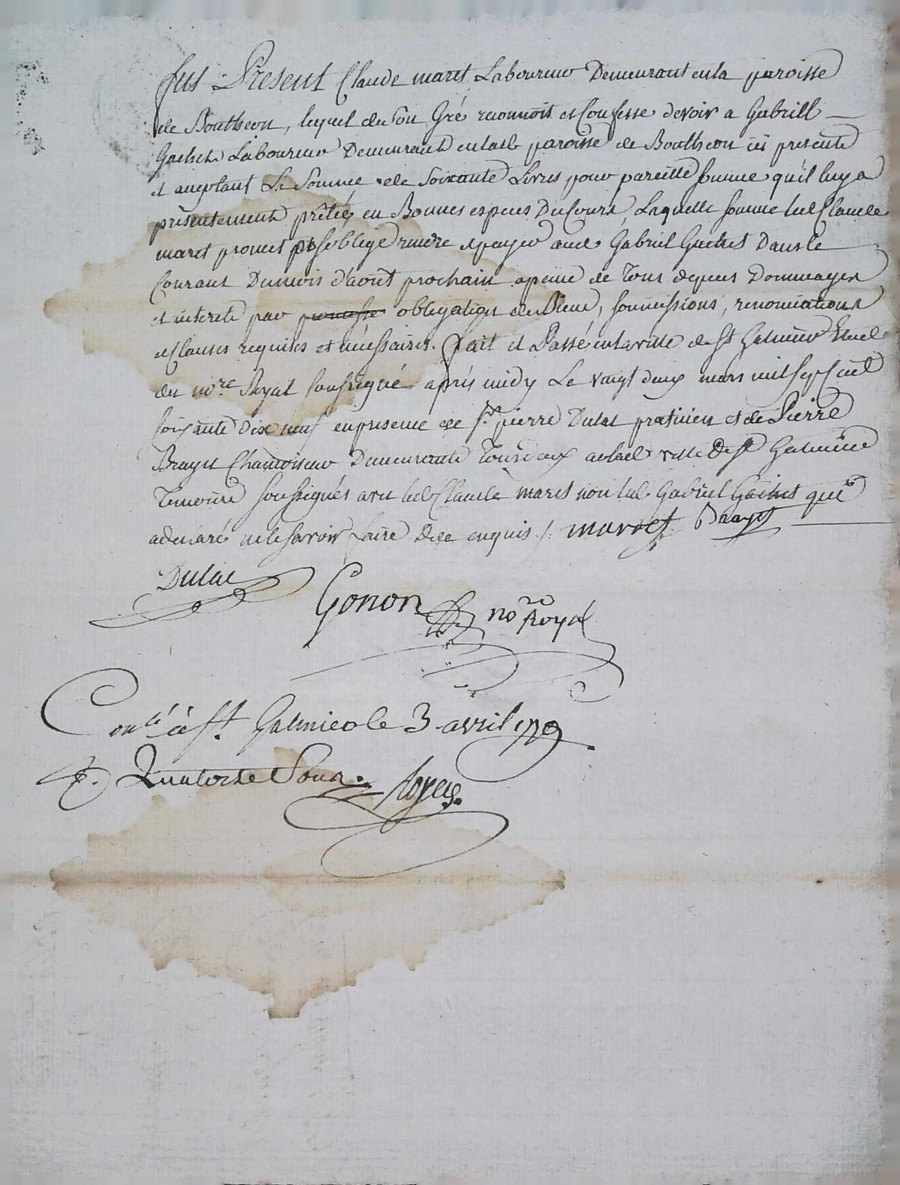 fut Present Claude maret Laboureur Demeurant en la paroisse
de Bouthéon, lequel de son Gré reconnoit et Confesse devoir a Gabriell
Gachet Laboureur Demeurant en lad. paroisse de Bouthéon ici presente
et aceptant La Somme de Soixante Livres pour pareille somme qu'il luy a
présentement prêtée en Bonnes especes Du Cours, Laquelle somme led. Claude
maret promet s'oblige rendre et payer aud. Gabriel Gachet Dans le
Courant Du mois d'aout prochain a peine de Tous depens Dommages
et interets par promesse obligation de Biens, soumissions, renonciations
et Clauses requises et nécessaires. fait et Passé en la ville de St Galmier Etude
du nore. Royal soussigné après midy Le vingt deux mars mil sept cent
soixante dix neuf en presence de Sr. pierre Dulac praticien et de Pierre
Brayet Chamoiseur Demeurants Tous deux en lad. ville de St Galmier
Temoins soussignés avec led. Claude maret non led. Gabriel Gachet qui
a declaré ne le savoir faire de ce enquis ./. maret Brayet
Dulac
Gonon nore Royal
Conlé à St. Galmier le 3 avril 1779.
R. Quatorze Sous. Royer